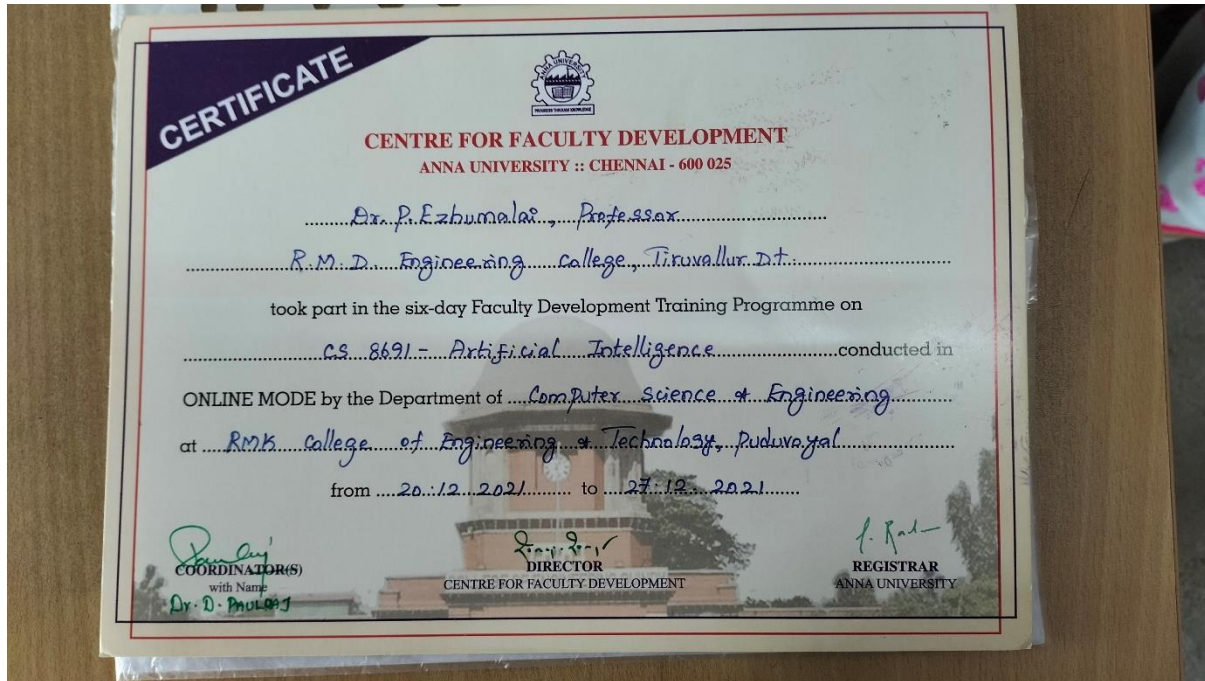 CERTIFICATE
ANNA UNIVERSITY
PROGRESS THROUGH KNOWLEDGE
CENTRE FOR FACULTY DEVELOPMENT
ANNA UNIVERSITY :: CHENNAI - 600 025
Dr. P. Ezhumalai, Professor
R.M.D. Engineering College, Tiruvallur Dt.
took part in the six-day Faculty Development Training Programme on
CS 8691 - Artificial Intelligence conducted in
ONLINE MODE by the Department of Computer Science & Engineering
at RMK College of Engineering & Technology, Puduvoyal
from 20.12.2021 to 27.12.2021
COORDINATOR(S)
with Name
Dr. D. PAULRAJ
DIRECTOR
CENTRE FOR FACULTY DEVELOPMENT
REGISTRAR
ANNA UNIVERSITY